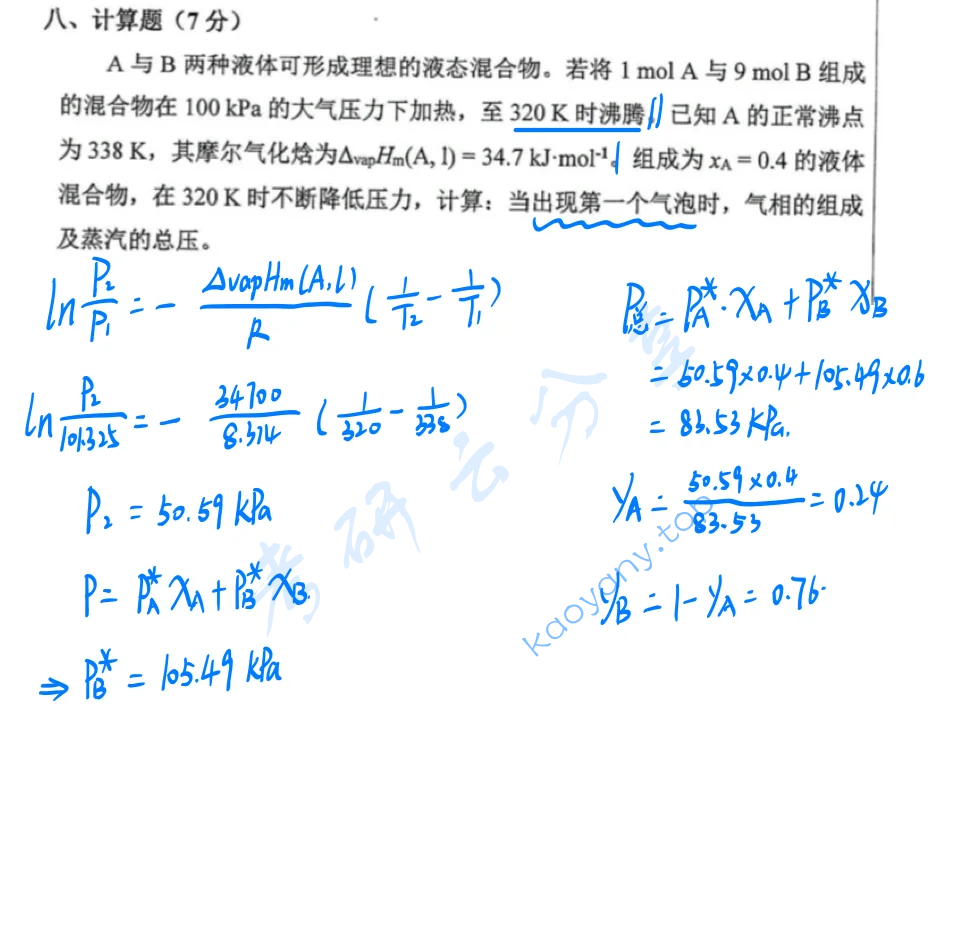 八、计算题（7 分）
A 与 B 两种液体可形成理想的液态混合物。若将 1 mol A 与 9 mol B 组成
的混合物在 100 kPa 的大气压力下加热，至 320 K 时沸腾。已知 A 的正常沸点
为 338 K，其摩尔气化焓为ΔvapHm(A, l) = 34.7 kJ·mol⁻¹。组成为 xA = 0.4 的液体
混合物，在 320 K 时不断降低压力，计算：当出现第一个气泡时，气相的组成
及蒸汽的总压。
ln P₂/P₁ = - ΔvapHm(A,l)/R (1/T₂ - 1/T₁)
ln P₂/101.325 = - 34700/8.314 (1/320 - 1/338)
P₂ = 50.59 kPa
P = P*A xA + P*B xB.
⇒ P*B = 105.49 kPa
P总 = P*A · xA + P*B xB
= 50.59×0.4+105.49×0.6
= 83.53 kPa.
yA = 50.59×0.4/83.53 = 0.24
yB = 1 - yA = 0.76.
考研云分享
kaoyany.top